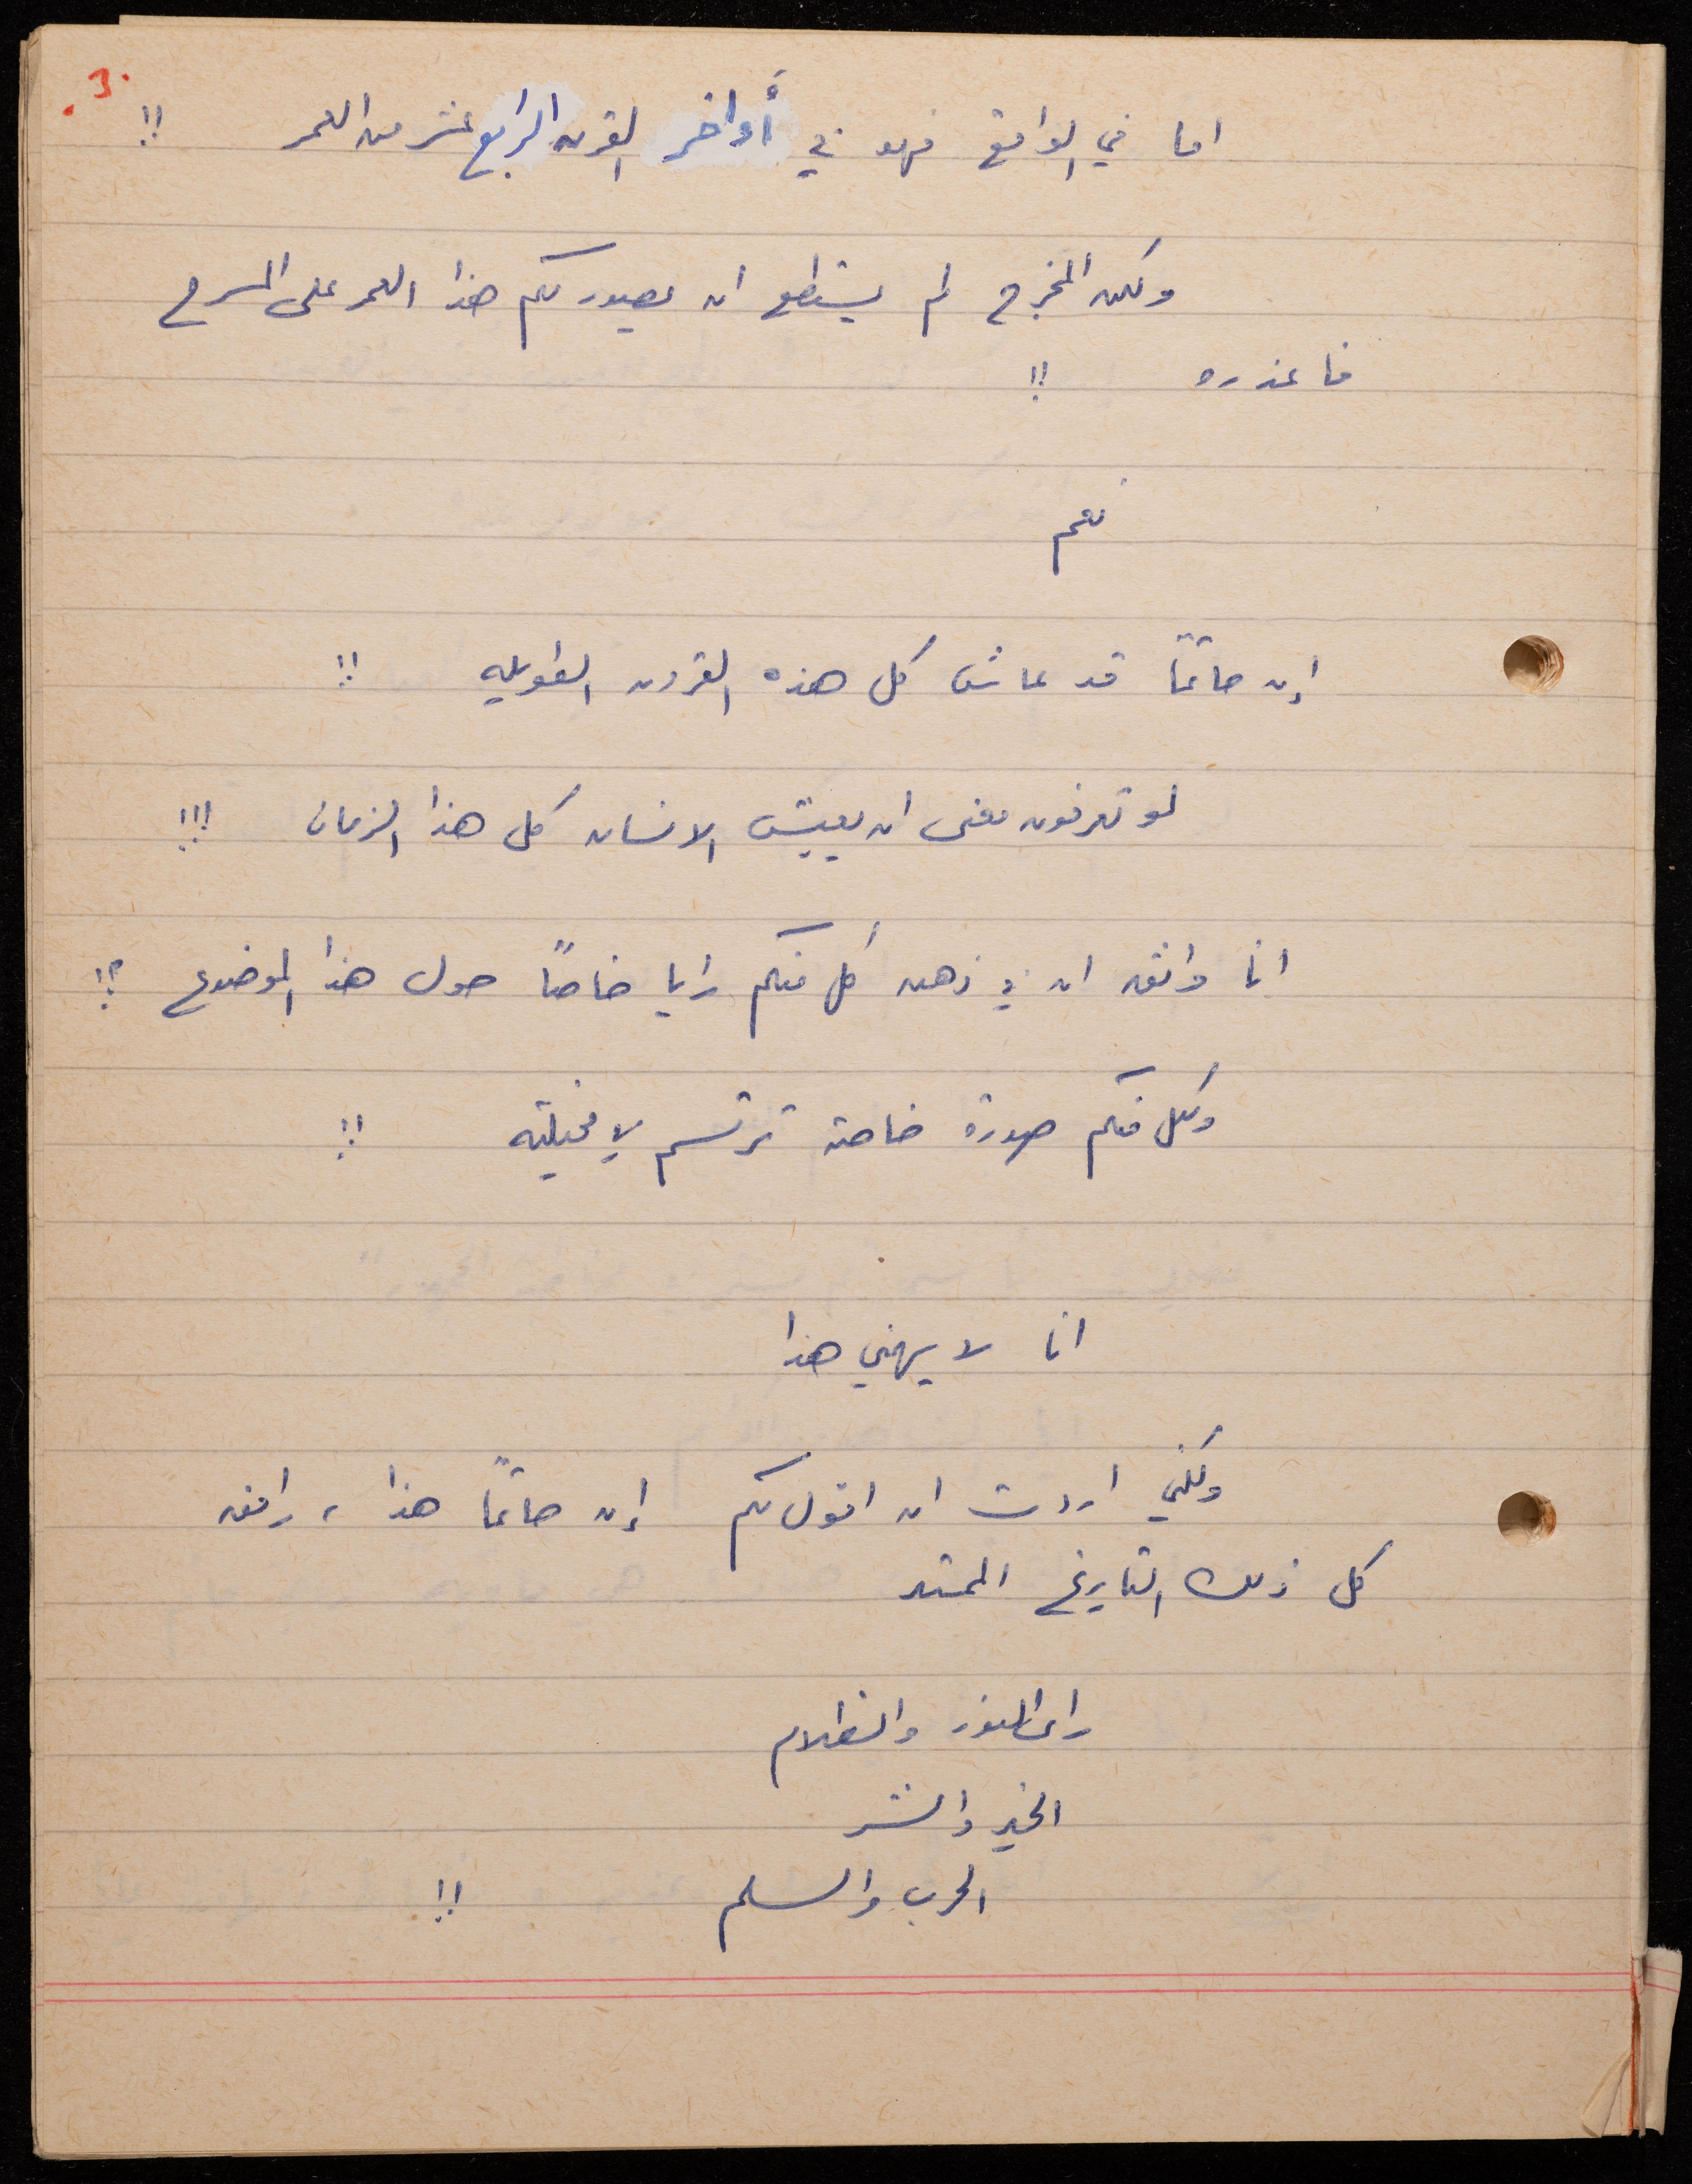 .3.
اما في الواقع فهو في أواخر القرن الرابع عشر من العمر !!
ولكن المخرج لم يستطع ان يصور لكم هذا العمر على المسرح
فاعذروه !!
نعم
إن حاتمًا قد عاش كل هذه القرون الطويله !!
لو تعرفون معنى ان يعيش الانسان كل هذا الزمان !!!
انا واثق ان في ذهن كل منكم رايا خاصًا حول هذا الموضوع ؟!
ولكل منكم صورة خاصة ترتسم في مخيلته !!
انا لا يهمني هذا
ولكني اردت ان اقول لكم إن حاتمًا هذا ، رافق
كل ذلك التاريخ الممتد
راى النور والظلام
الخير والشر
الحرب والسلم !!